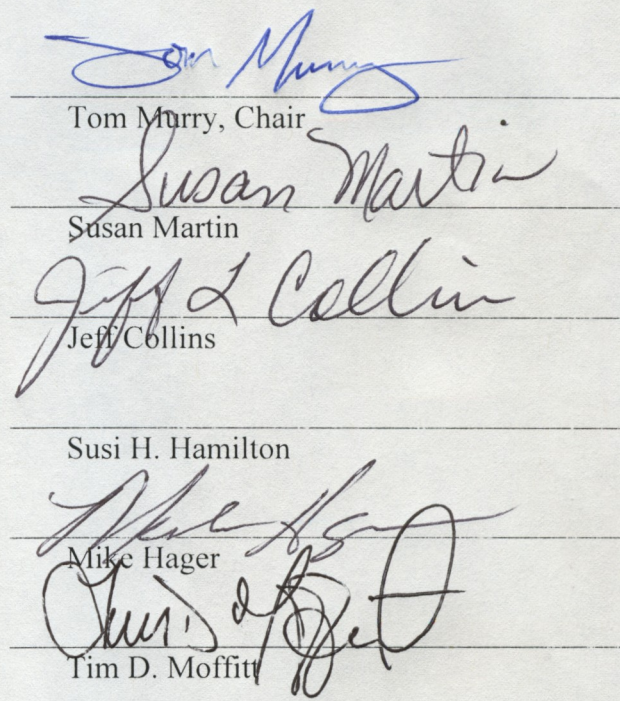 Tom Murry
Tom Murry, Chair
Susan Martin
Susan Martin
Jeff L Collins
Jeff Collins
Susi H. Hamilton
Mike Hager
Mike Hager
Tim D. Moffitt
Tim D. Moffitt